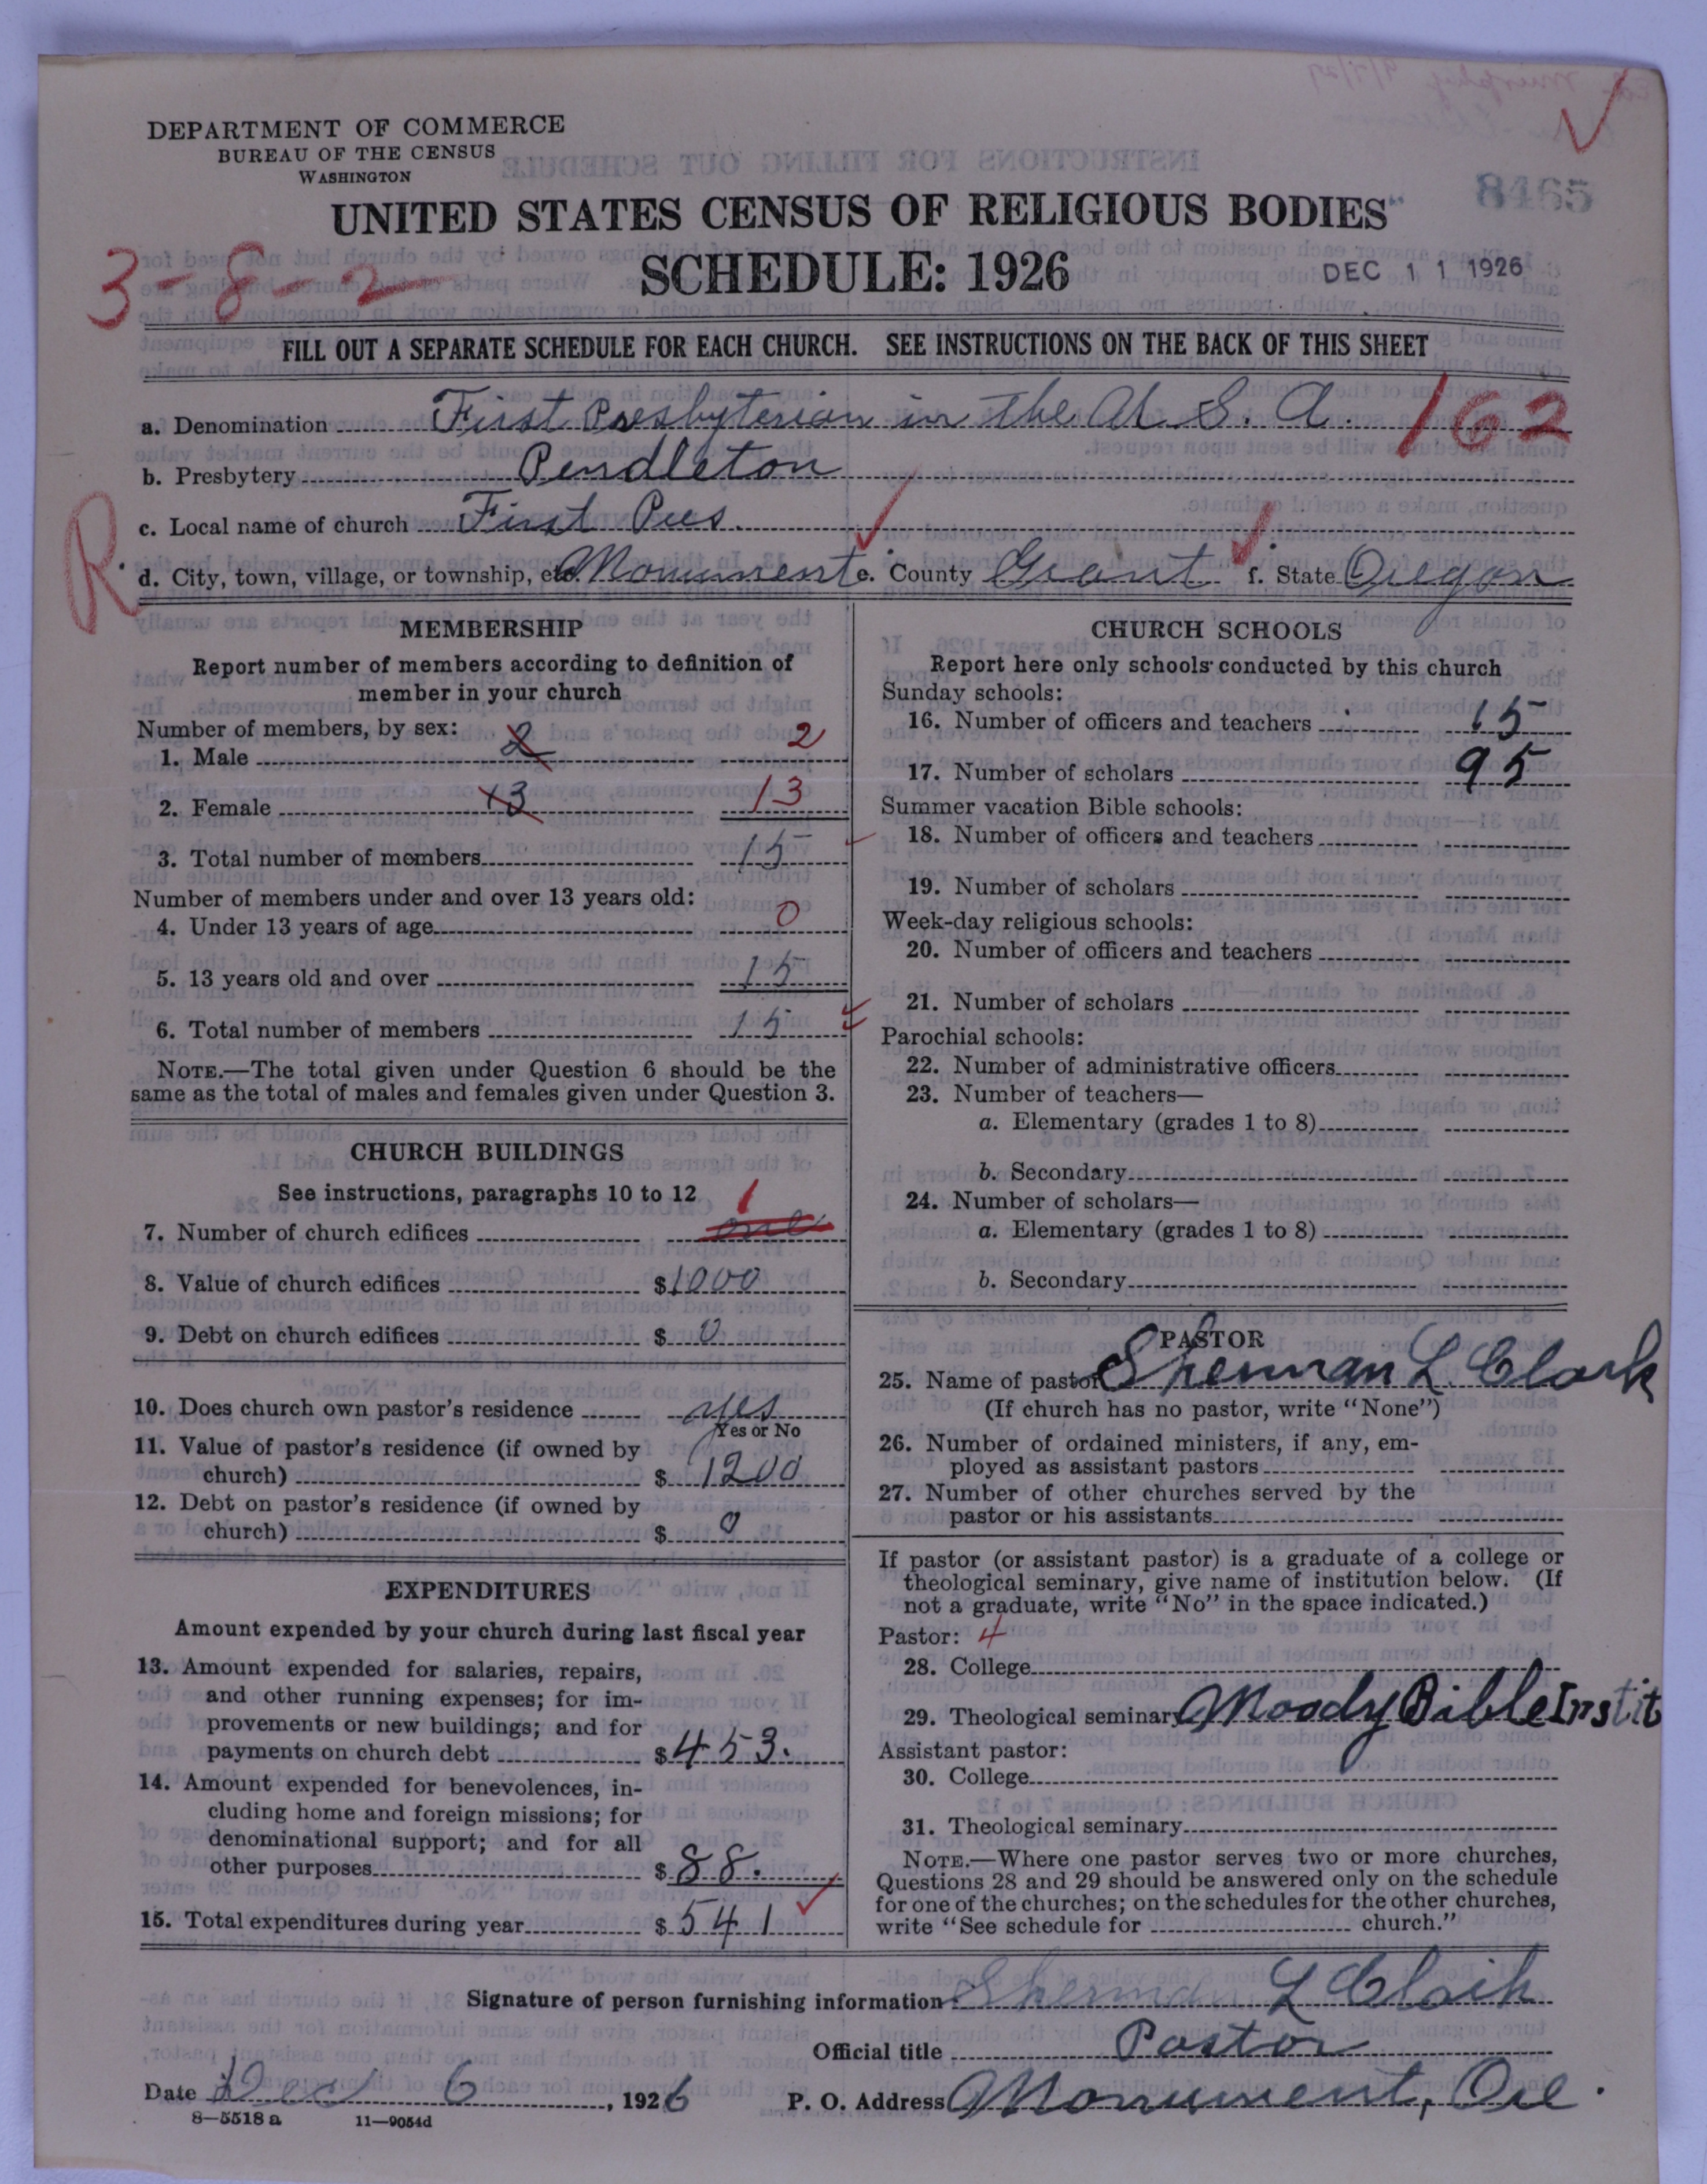 DEPARTMENT OF COMMERCE
BUREAU OF THE CENSUS
WASHINGTON
INSTRUCTIONS FOR FILLING OUT SCHEDULE
8465
UNITED STATES CENSUS OF RELIGIOUS BODIES
SCHEDULE: 1926
DEC 11 1926
3-8-2
FILL OUT A SEPARATE SCHEDULE FOR EACH CHURCH. SEE INSTRUCTIONS ON THE BACK OF THIS SHEET
a. Denomination First Presbyterian in the U. S. A. 162
b. Presbytery Pendleton
c. Local name of church First Pres.
R
d. City, town, village, or township, etc. Monument e. County Grant f. State Oregon
MEMBERSHIP
Report number of members according to definition of
member in your church
Number of members, by sex:
1. Male 2 2
2. Female 13 13
3. Total number of members 15
Number of members under and over 13 years old:
4. Under 13 years of age 0
5. 13 years old and over 15
6. Total number of members 15
NOTE.—The total given under Question 6 should be the
same as the total of males and females given under Question 3.
CHURCH BUILDINGS
See instructions, paragraphs 10 to 12
7. Number of church edifices one 1
8. Value of church edifices $1000
9. Debt on church edifices $ 0
10. Does church own pastor's residence yes
Yes or No
11. Value of pastor's residence (if owned by
church) $ 1200
12. Debt on pastor's residence (if owned by
church) $ 0
EXPENDITURES
Amount expended by your church during last fiscal year
13. Amount expended for salaries, repairs,
and other running expenses; for im-
provements or new buildings; and for
payments on church debt $ 453.
14. Amount expended for benevolences, in-
cluding home and foreign missions; for
denominational support; and for all
other purposes $ 88.
15. Total expenditures during year $ 541
CHURCH SCHOOLS
Report here only schools conducted by this church
Sunday schools:
16. Number of officers and teachers 15
17. Number of scholars 95
Summer vacation Bible schools:
18. Number of officers and teachers
19. Number of scholars
Week-day religious schools:
20. Number of officers and teachers
21. Number of scholars
Parochial schools:
22. Number of administrative officers
23. Number of teachers—
a. Elementary (grades 1 to 8)
b. Secondary
24. Number of scholars—
a. Elementary (grades 1 to 8)
b. Secondary
PASTOR
25. Name of pastor Sherman L. Clark
(If church has no pastor, write "None")
26. Number of ordained ministers, if any, em-
ployed as assistant pastors
27. Number of other churches served by the
pastor or his assistants
If pastor (or assistant pastor) is a graduate of a college or
theological seminary, give name of institution below. (If
not a graduate, write "No" in the space indicated.)
Pastor: 4
28. College
29. Theological seminary Moody Bible Instit
Assistant pastor:
30. College
31. Theological seminary
NOTE.—Where one pastor serves two or more churches,
Questions 28 and 29 should be answered only on the schedule
for one of the churches; on the schedules for the other churches,
write "See schedule for church."
Signature of person furnishing information Sherman L Clark
Official title Pastor
Date Dec 6, 1926 P. O. Address Monument, Ore.
8—5518 a 11—9054d